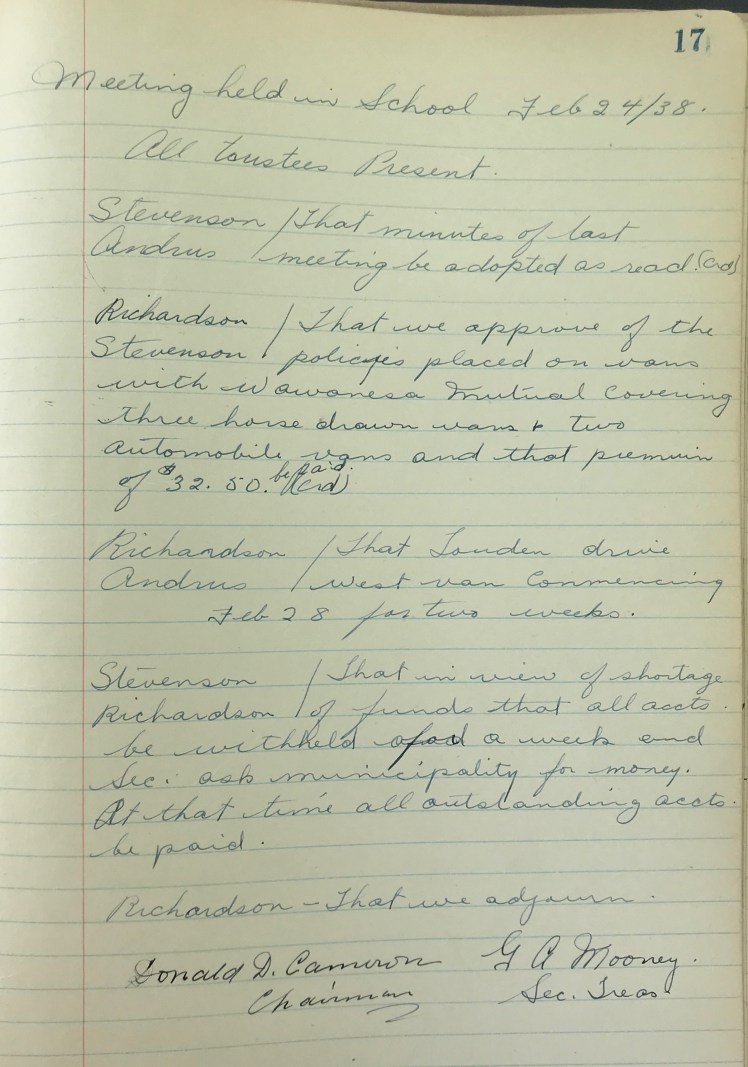 17
Meeting held in School Feb 24/38.
All trustees Present.
Stevenson / That minutes of last
Andrus / meeting be adopted as read. (Crd)
Richardson / That we approve of the
Stevenson / policyies placed on vans
with Wawanesa Mutual Covering
three horse drawn vans & two
automobile vans and that premium
of $32.50. be paid. (Crd)
Richardson / That Louden drive
Andrus / west van Commencing
Feb 28 for two weeks.
Stevenson / That in view of shortage
Richardson / of funds that all accts.
be withheld a week and
Sec. ask municipality for money.
At that time all outstanding accts.
be paid.
Richardson - That we adjourn.
Donald D. Cameron G A Mooney.
Chairman Sec. Treas.